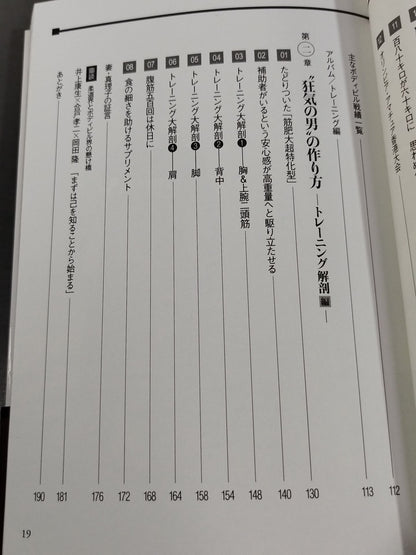 11
百八十キロが六十キロに
12
主なボディビル戦績一覧 112
アルバム/トレーニング編 113
第二章 “狂気の男”の作り方 ―トレーニング解剖編―
01 たどりついた「筋肥大超特化型」 130
02 補助者がいるという安心感が高重量へと駆り立たせる 140
03 トレーニング大解剖❶ 胸&上腕二頭筋 148
04 トレーニング大解剖❷ 背中 154
05 トレーニング大解剖❸ 脚 158
06 トレーニング大解剖❹ 肩 164
07 腹筋五百回は休日に 168
08 食の細さを助けるサプリメント 172
妻・真理子の証言 176
鼎談 柔道界とボディビル界の懸け橋
井上康生×合戸孝二×岡田隆 「まずは己を知ることから始まる」 181
あとがき 190
19